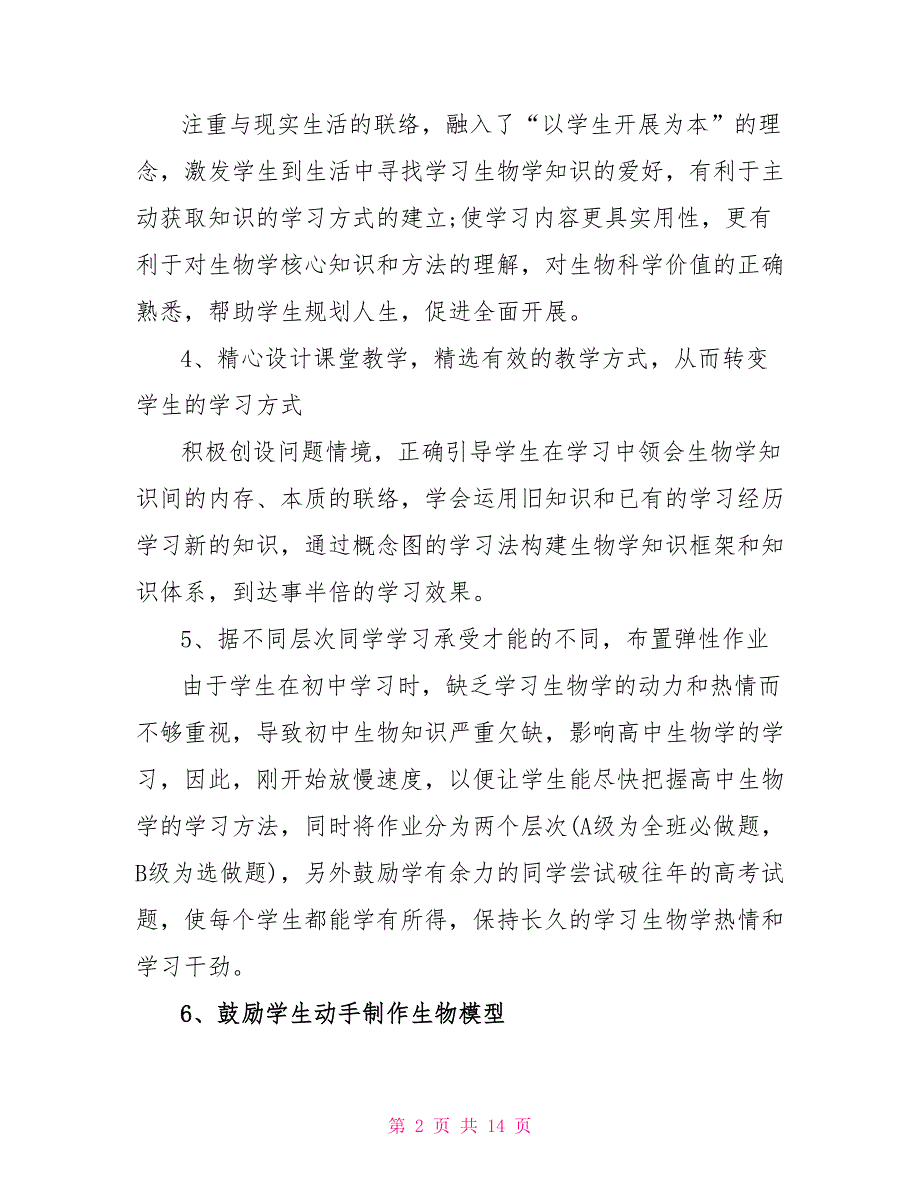 注重与现实生活的联络，融入了“以学生开展为本”的理
念，激发学生到生活中寻找学习生物学知识的爱好，有利于主
动获取知识的学习方式的建立;使学习内容更具实用性，更有
利于对生物学核心知识和方法的理解，对生物科学价值的正确
熟悉，帮助学生规划人生，促进全面开展。
4、精心设计课堂教学，精选有效的教学方式，从而转变
学生的学习方式
积极创设问题情境，正确引导学生在学习中领会生物学知
识间的内存、本质的联络，学会运用旧知识和已有的学习经历
学习新的知识，通过概念图的学习法构建生物学知识框架和知
识体系，到达事半倍的学习效果。
5、据不同层次同学学习承受才能的不同，布置弹性作业
由于学生在初中学习时，缺乏学习生物学的动力和热情而
不够重视，导致初中生物知识严重欠缺，影响高中生物学的学
习，因此，刚开始放慢速度，以便让学生能尽快把握高中生物
学的学习方法，同时将作业分为两个层次(A级为全班必做题，
B级为选做题)，另外鼓励学有余力的同学尝试破往年的高考试
题，使每个学生都能学有所得，保持长久的学习生物学热情和
学习干劲。
6、鼓励学生动手制作生物模型
第 2 页 共 14 页